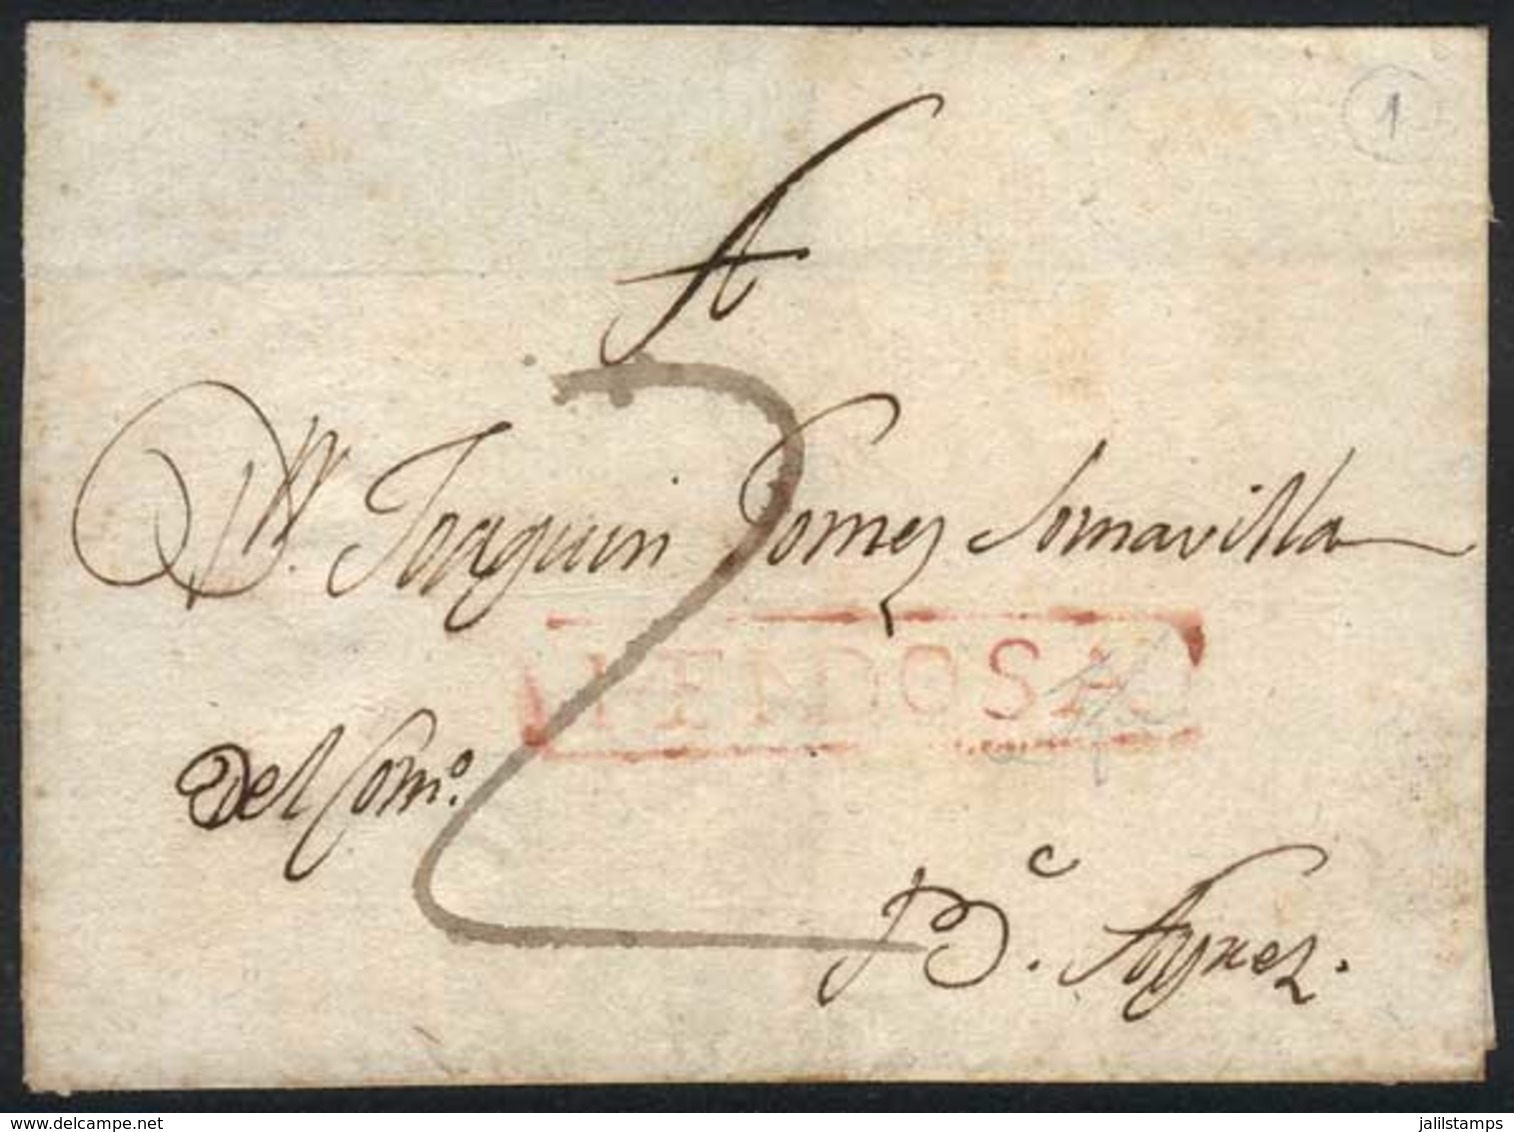 1
A
Dn. Joaquin Gomez Somavilla
2
MENDOSA
Del Como.
Bc. Ayres.
www.delcampe.net
jalilstamps